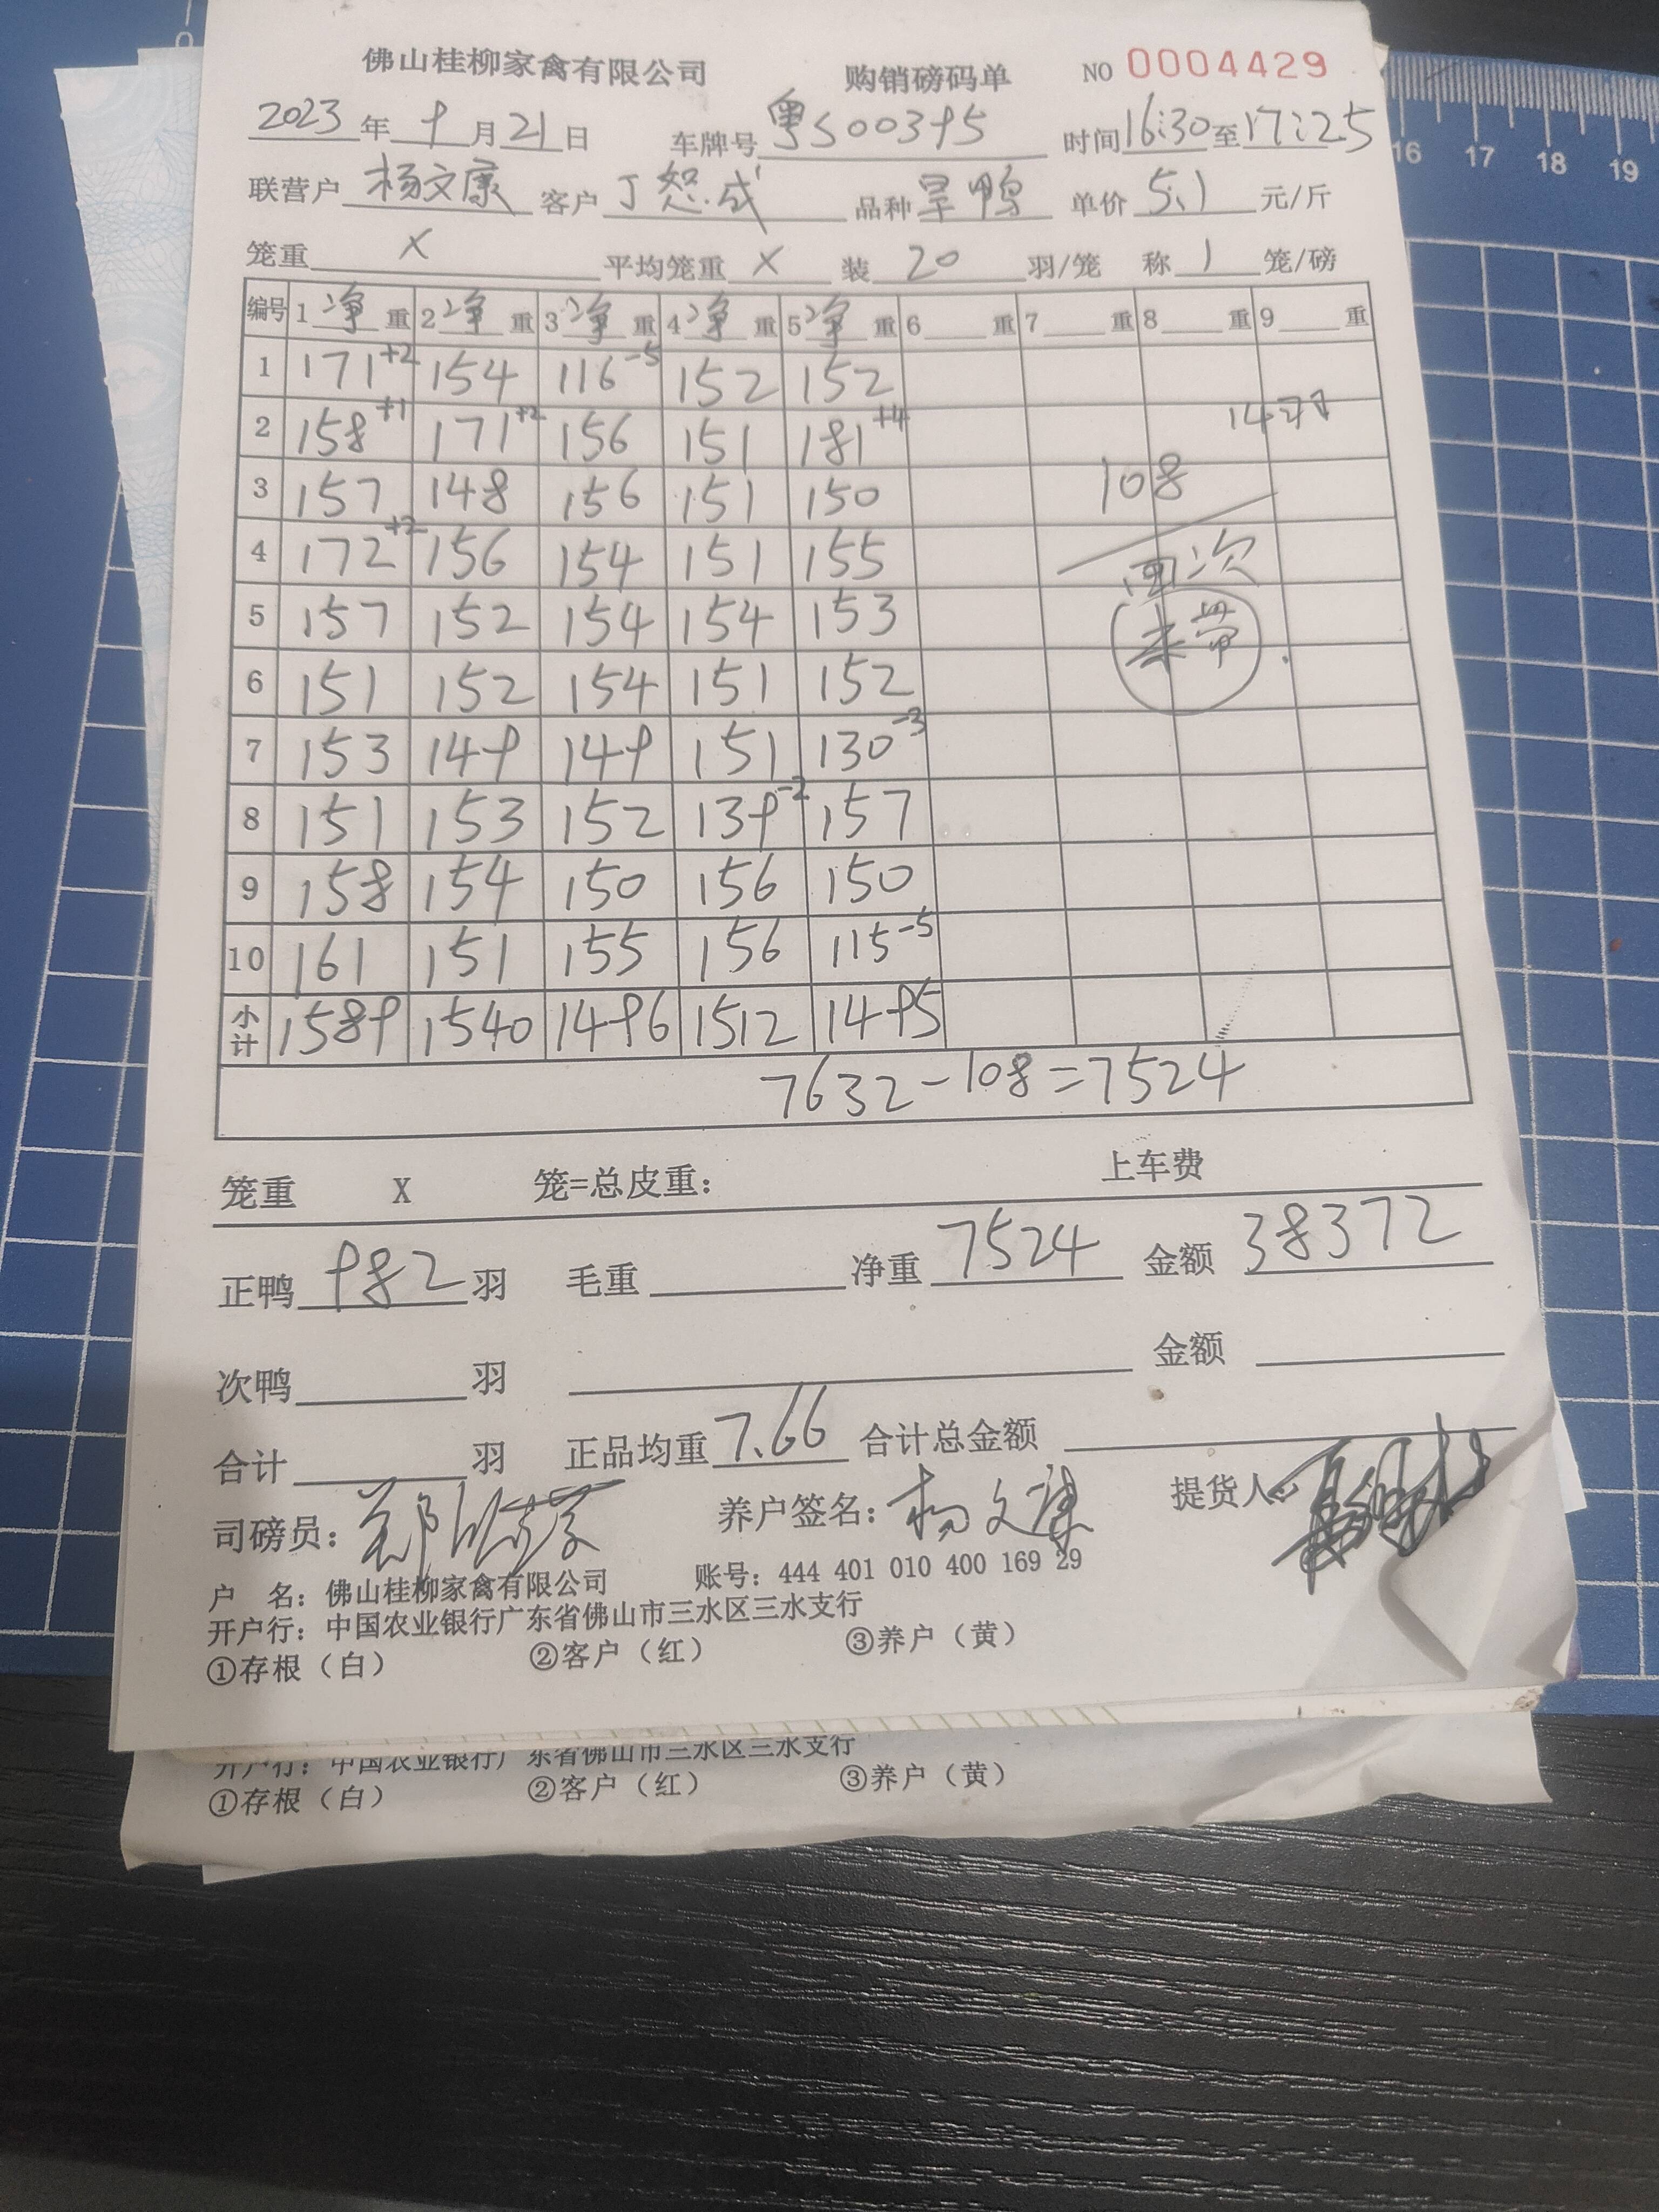 佛山桂柳家禽有限公司 购销磅码单 NO 0004429
2023年9月21日 车牌号 粤S00395 时间16:30至17:25
联营户 杨文康 客户 丁恕成 品种 旱鸭 单价 5.1 元/斤
笼重 X 平均笼重 X 装 20 羽/笼 称 1 笼/磅
编号 1净重 2净重 3净重 4净重 5净重 6 重 7 重 8 重 9 重
1 171+2 154 116-5 152 152
2 158+1 171+2 156 151 181+4 14只
3 157 148 156 151 150 108
4 172+2 156 154 151 155 回次
5 157 152 154 154 153 未带
6 151 152 154 151 152
7 153 149 149 151 130-3
8 151 153 152 139-2 157
9 158 154 150 156 150
10 161 151 155 156 115-5
小计 1589 1540 1496 1512 1495
7632-108=7524
笼重 X 笼=总皮重: 上车费
正鸭 982 羽 毛重 净重 7524 金额 38372
次鸭 羽 金额
合计 羽 正品均重 7.66 合计总金额
司磅员: 养户签名: 杨文康 提货人:
户 名: 佛山桂柳家禽有限公司 账号: 444 401 010 400 169 29
开户行: 中国农业银行广东省佛山市三水区三水支行
①存根(白) ②客户(红) ③养户(黄)
开户行: 中国农业银行广东省佛山市三水区三水支行
①存根(白) ②客户(红) ③养户(黄)
16 17 18 19
0